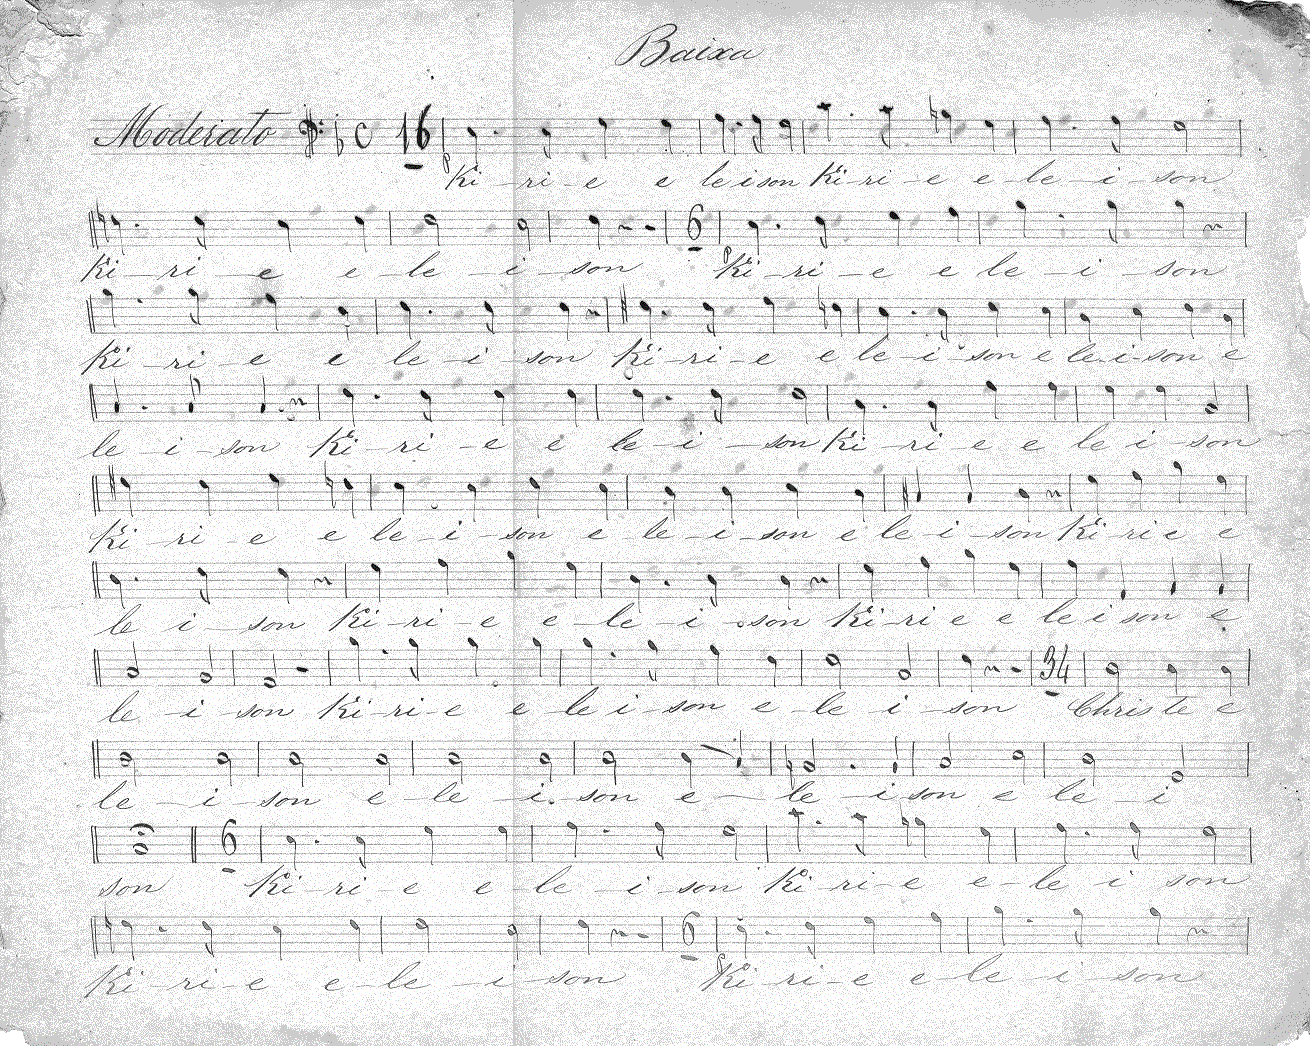 Baixa
Moderato C 16
p Ki - ri - e e le i son Ki - ri - e e - le - i - son
Ki - ri - e e - le - i - son 6 p Ki - ri - e e le - i - son
Ki - ri - e e le - i - son Ki - ri - e e le - i - son e le - i - son e
le - i - son Ki - ri - e e le - i - son Ki - ri - e e le i - son
Ki - ri - e e le - i - son e le - i - son e le - i - son Ki rie e
le i - son Ki - ri - e e - le - i - son Ki - ri e e le i son e
le - i - son Ki - ri - e e le i - son e - le i - son 34 Christe e
le - i - son e - le - i - son e - le - i son e le - i
son 6 Ki - ri - e e - le - i - son Ki - ri - e e - le i son
Ki - ri - e e - le - i - son 6 p Ki - ri - e e - le - i - son